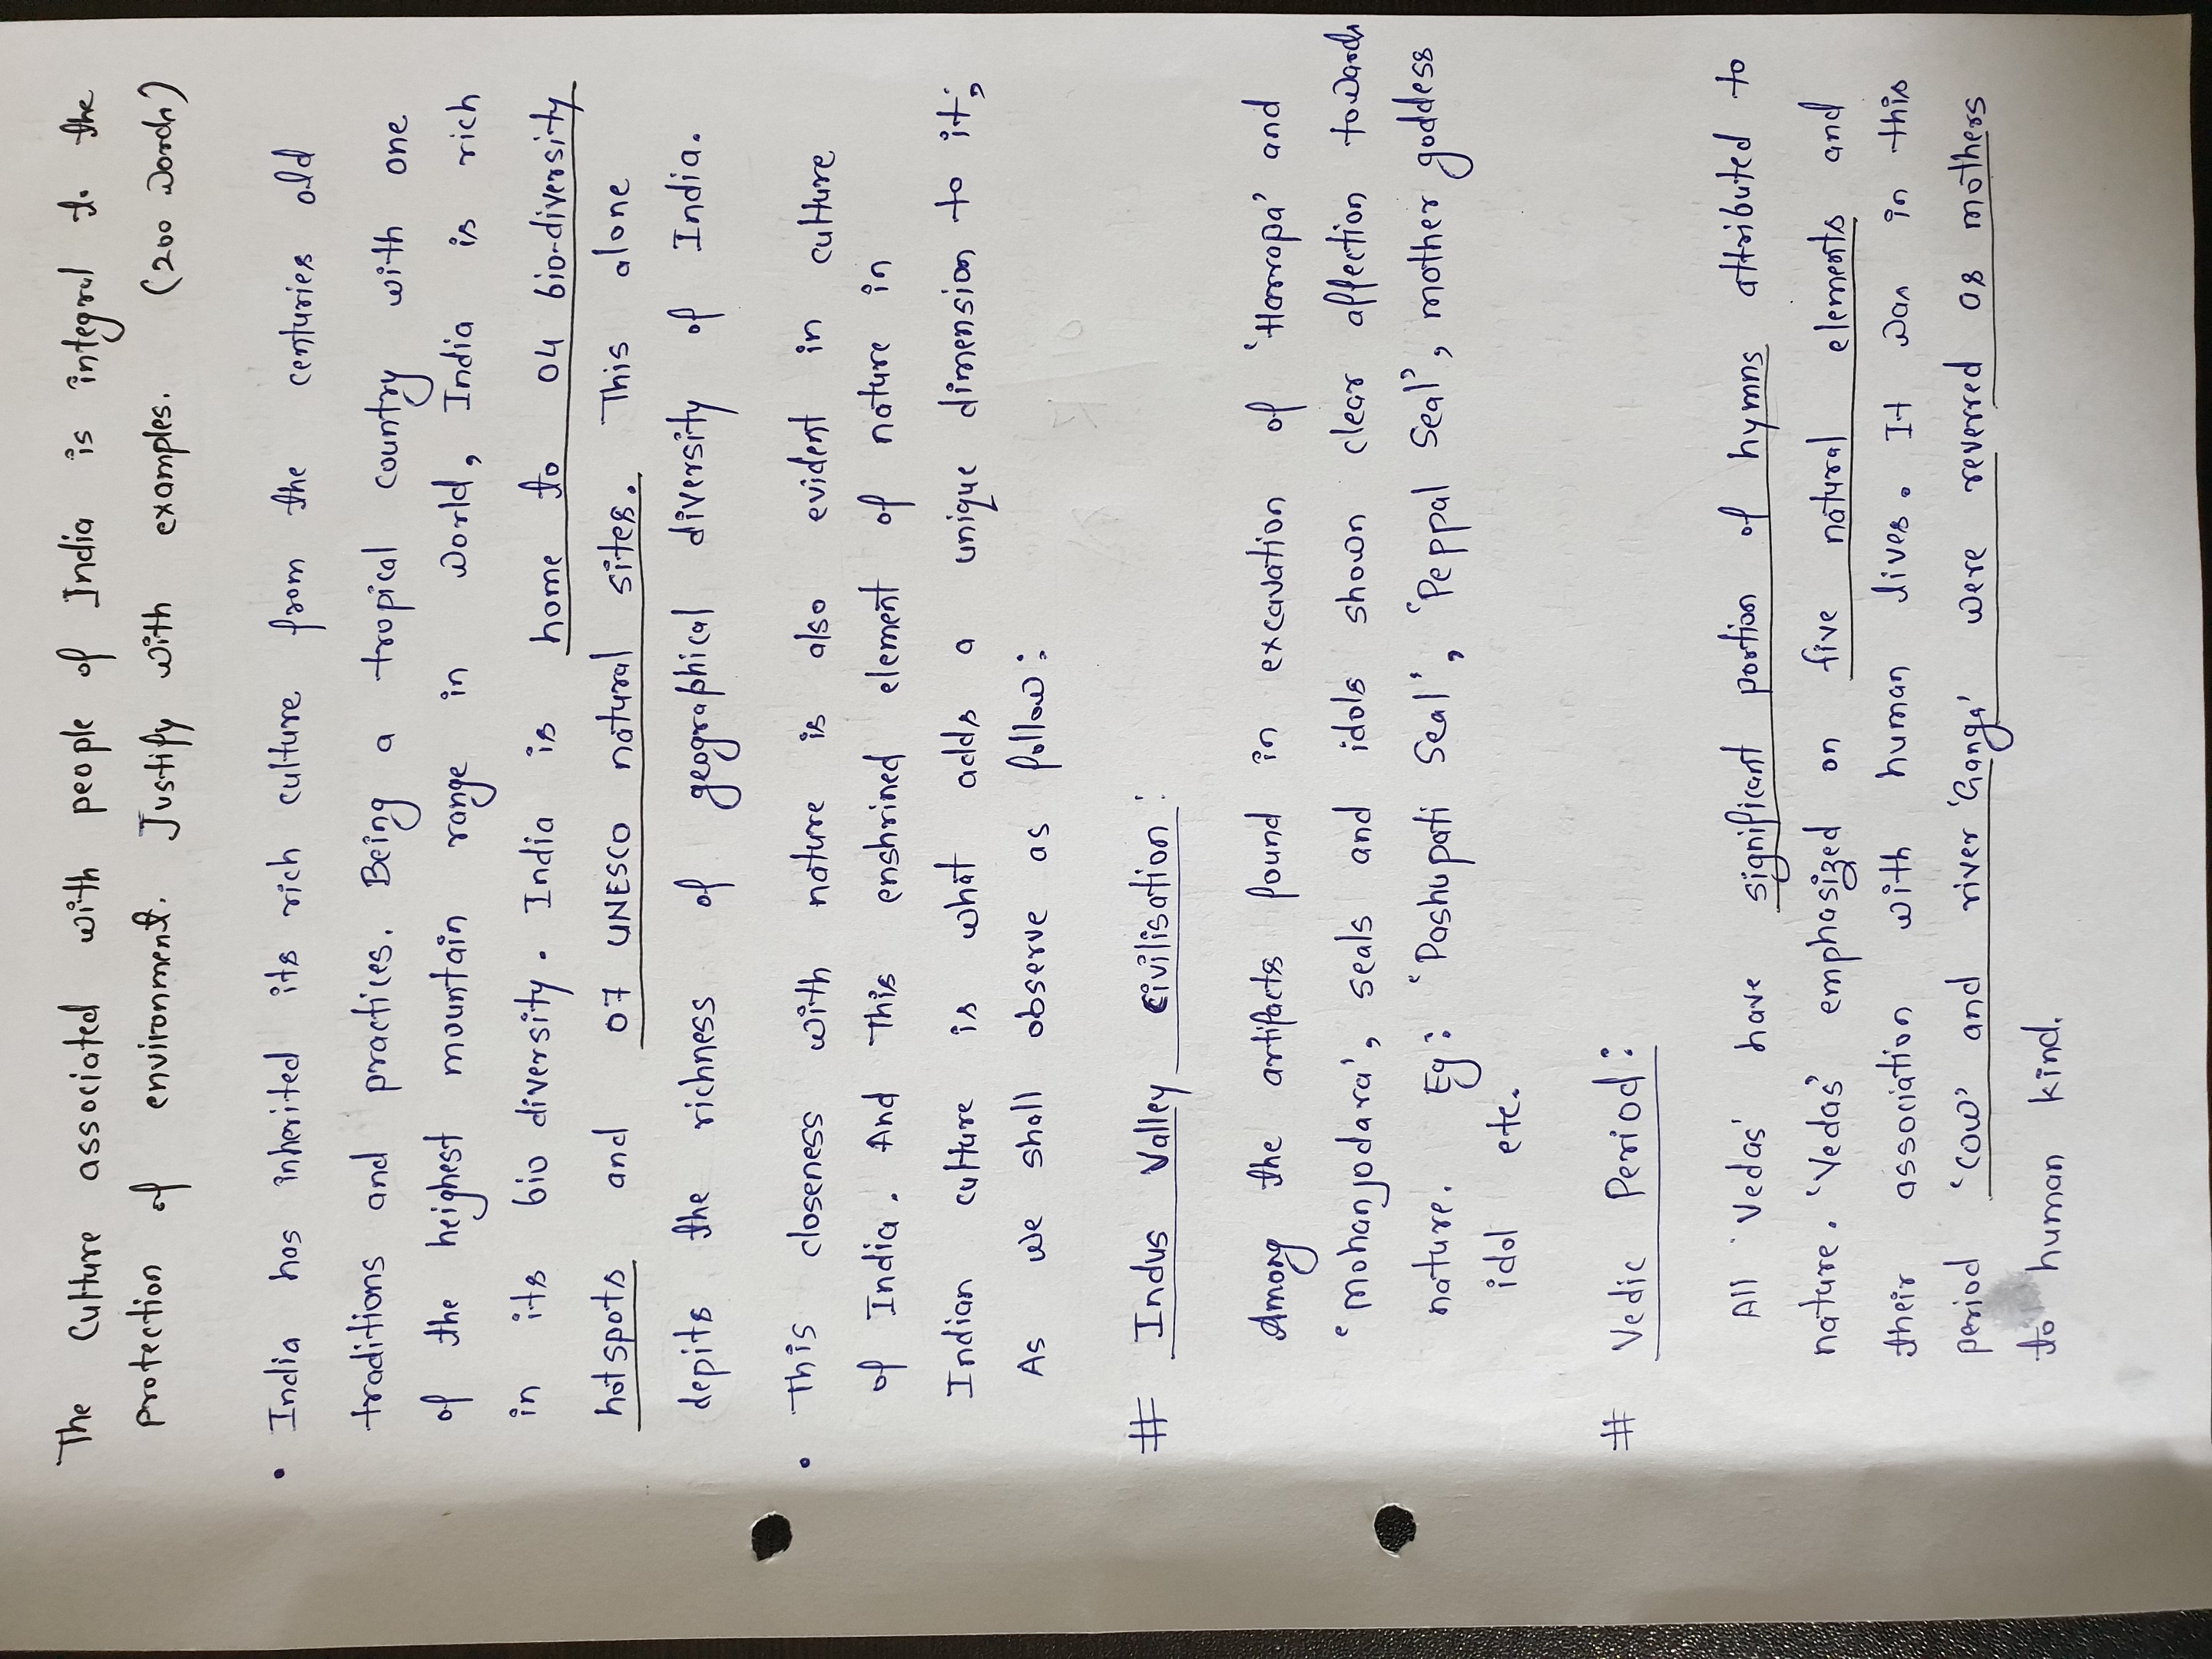 The Culture associated with people of India is integral to the
protection of environment. Justify with examples. (200 words)
• India has inherited its rich culture from the centuries old
traditions and practices. Being a tropical country with one
of the heighest mountain range in world, India is rich
in its bio diversity. India is home to 04 bio-diversity
hotspots and 07 UNESCO natural sites. This alone
depits the richness of geographical diversity of India.
• This closeness with nature is also evident in culture
of India. And this enshrined element of nature in
Indian culture is what adds a unique dimension to it;
As we shall observe as follow:
# Indus Valley civilisation:
Among the artifacts found in excavation of 'Harrapa' and
'mohanjodara', seals and idols shown clear affection towards
nature. Eg: 'Pashupati Seal', 'Peppal Seal', mother goddess
idol etc.
# Vedic Period:
All 'Vedas' have significant portion of hymns attributed to
nature. 'Vedas' emphasized on five natural elements and
their association with human lives. It was in this
period 'cow' and river 'Ganga' were reverred as mothers
to human kind.